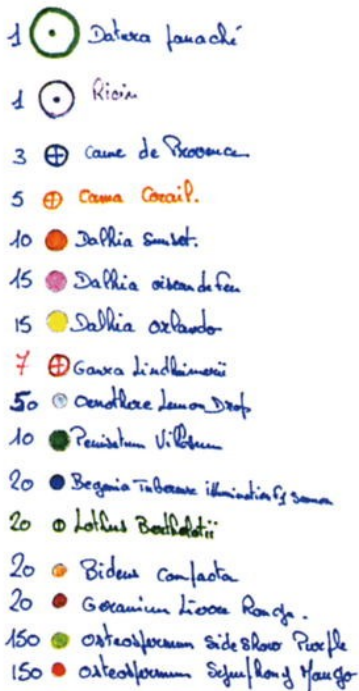 1 Datura panaché
1 Ricin
3 Canne de Provence
5 Canna Corail.
10 Dalhia Sunset.
15 Dalhia oiseau de feu
15 Dalhia orlando
7 Gaura Lindheimerii
50 Oenothère Lemon Drop
10 Penisetum Villosum
20 Begonia Tubereuse illumination F1 Saumon
20 Lothus Bertholotii
20 Bidens Compacta
20 Geranium Lierre Rouge.
150 osteospermum Side Show Purple
150 osteospermum Symphony Mango